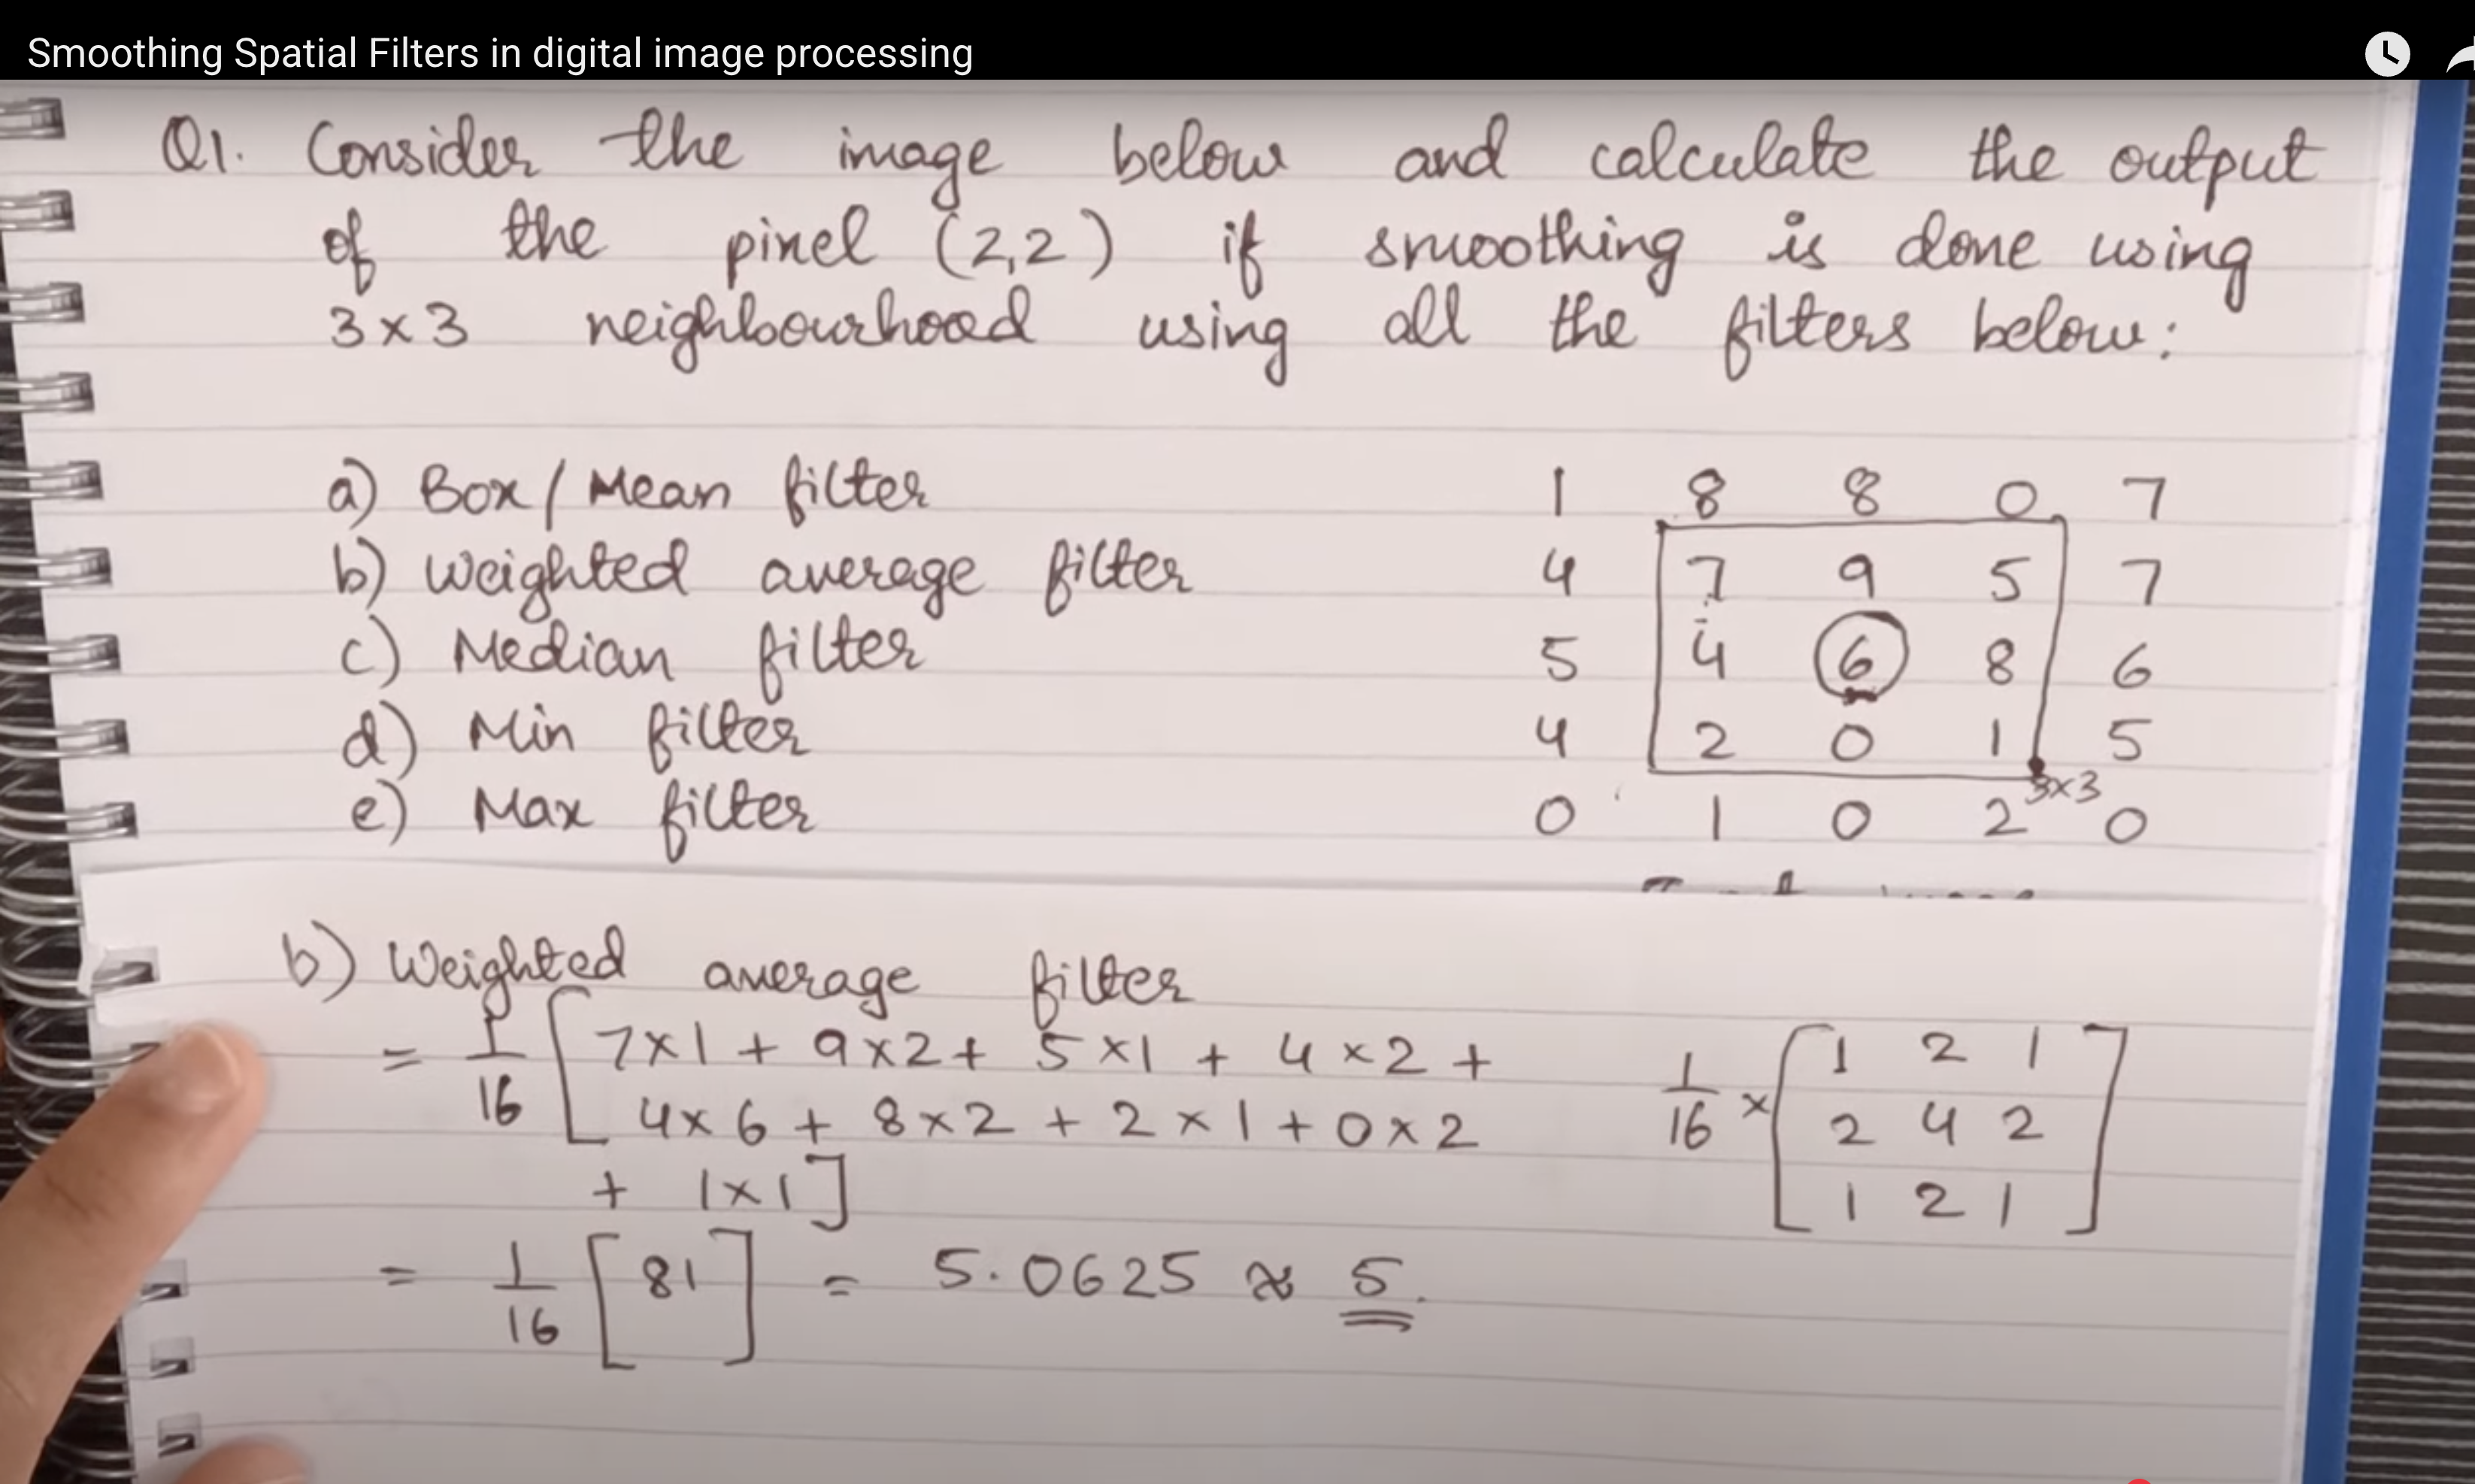 Smoothing Spatial Filters in digital image processing
Q1. Consider the image below and calculate the output
of the pixel (2,2) if smoothing is done using
3×3 neighbourhood using all the filters below:
a) Box/Mean filter
b) Weighted average filter
c) Median filter
d) Min filter
e) Max filter
1 8 8 0 7
4 7 9 5 7
5 4 6 8 6
4 2 0 1 5
3×3
0 1 0 2 0
b) Weighted average filter
= 1/16 [7×1 + 9×2 + 5×1 + 4×2 +
4×6 + 8×2 + 2×1 + 0×2
+ 1×1]
= 1/16 [81] = 5.0625 ≈ 5.
1/16 × [1 2 1
2 4 2
1 2 1]